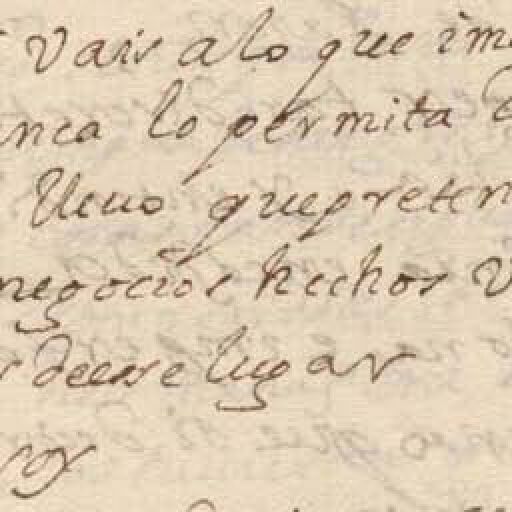 Vais alo que im
nca lo permita
lleuo que preten
negocios hechos V
r deesse lugar
roy